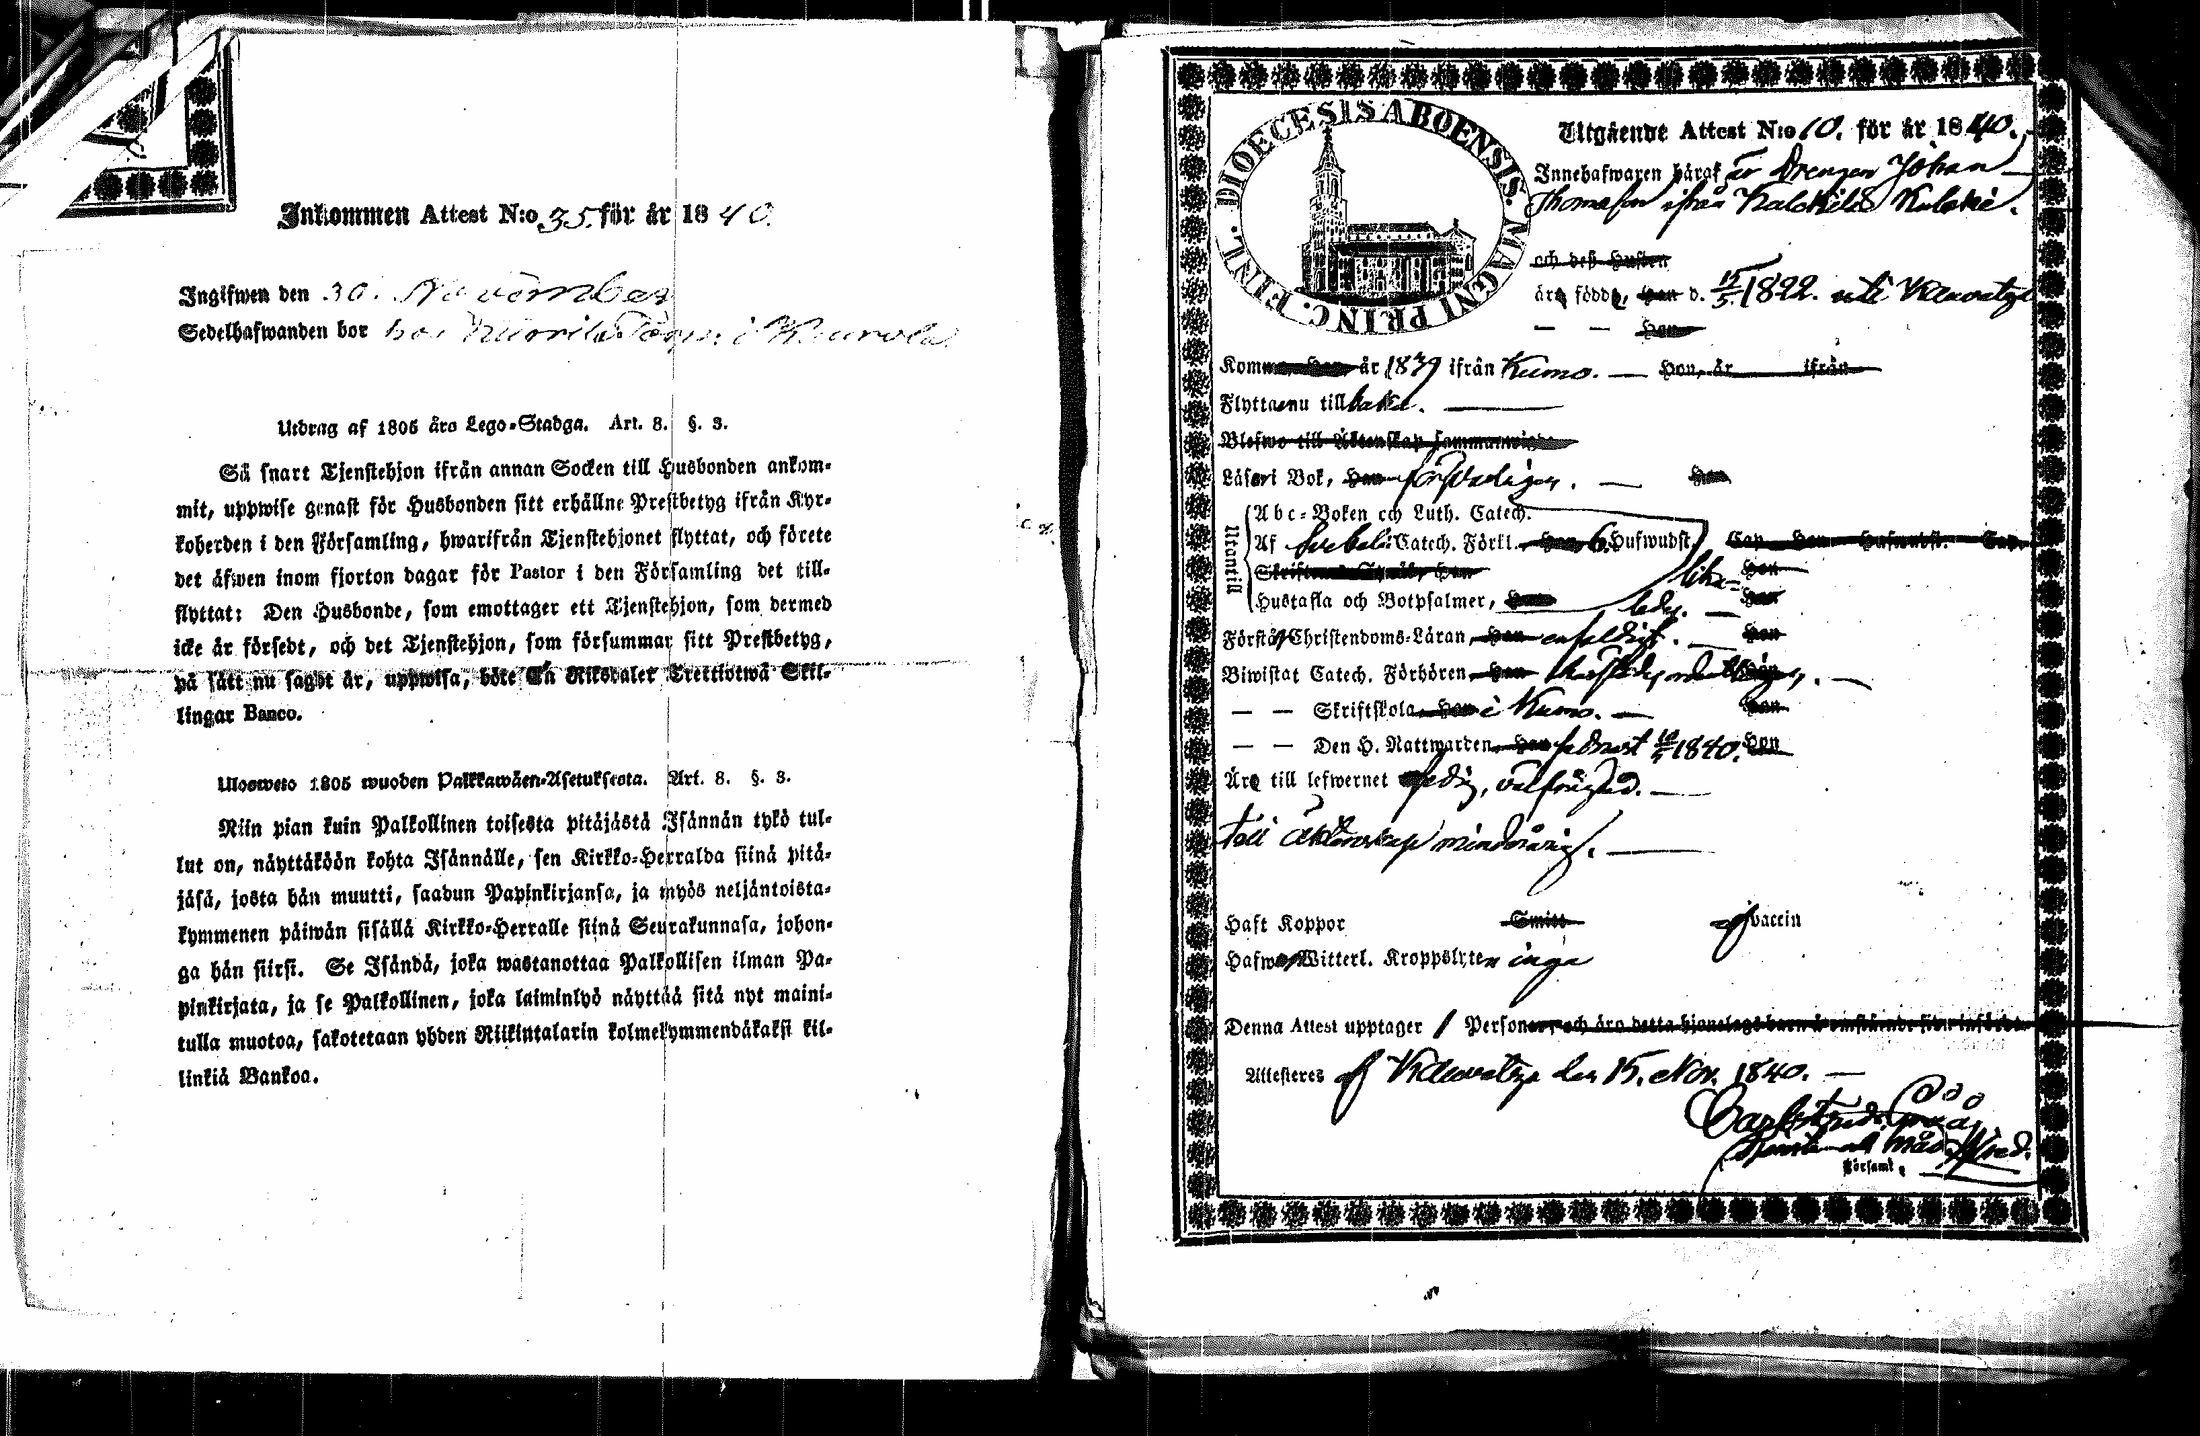 Inkommen Attest N:o 35. för år 1840.
Ingifwen den 30. November
Sedelhafwanden bor hos i
Utdrag af 1805 års Lego-Stadga. Art. 8. §. 3.
Så snart Tjenstehjon ifrån annan Socken till Husbonden ankom-
mit, uppwise genast för Husbonden sitt erhållne Prestbetyg ifrån Kyr-
koherden i den Församling, hwarifrån Tjenstehjonet flyttat, och förete
det äfwen inom fjorton dagar för Pastor i den Församling det till-
flyttat: Den Husbonde, som emottager ett Tjenstehjon, som dermed
icke är försedt, och det Tjenstehjon, som försummar sitt Prestbetyg,
på sätt nu sagdt är, uppwisa, böte En Riksdaler Trettiotwå Skil-
lingar Banco.
Ulosweto 1805 wuoden Palkkawäen-Asetuksesta. Art. 8. §. 3.
Niin pian kuin Palkollinen toisesta pitäjästä Isännän tykö tul-
lut on, näyttäköön kohta Isännälle, sen Kirkko-Herralda siinä pitä-
jäsä, josta hän muutti, saadun Papinkirjansa, ja myös neljäntoista-
kymmenen päiwän sisällä Kirkko-Herralle siinä Seurakunnasa, johon-
ga hän siirsi. Se Isändä, joka wastanottaa Palkollisen ilman Pa-
pinkirjata, ja se Palkollinen, joka laiminlyö näyttää sitä nyt maini-
tulla muotoa, sakotetaan yhden Riikintalarin kolmekymmendäkaksi kil-
linkiä Bankoa.
DIOECESIS ABOENSIS. MAGNI PRINC. FINL.
Utgående Attest N:o 10. för år 1840.
Innehafwaren häraf är Drengen Johan
Thomasson ifrån
och deß Hustru
äro födde, Han d. 12/5 1822. uti
Hon
Komm Han, år 1839 ifrån Kumo. — Hon, år ifrån
Flytta nu tillbaka.
Blefwo till Äktenskap sammanwigde
Läser i Bok, Han försvarligen. — Hon
Utantill
Abc-Boken och Luth. Catech.
Af Svebeli Catech. Förkl. Han, 6. Hufwudst. Cap. Hon Hufwudst. Cap.
lika- Hon
Hustafla och Botpsalmer, Han ledes. — Hon
Förstår Christendoms-Läran, Han enfaldigt. — Hon
Biwistat Catech. Förhören Han
— — Skriftskola Han i Kumo. — Hon
— — Den H. Nattwarden, Han sednast 1840. Hon
Äro till lefwernet ledig, välfrägdad. —
till Äktenskap minderårig. —
Haft Koppor Smitt af vaccin
Hafwa Witterl. Kroppslyten inga
Denna Attest upptager 1 Personer, och äro detta hjonelags barn
Attesteras af den 15. Nov. 1840. —
Församl.